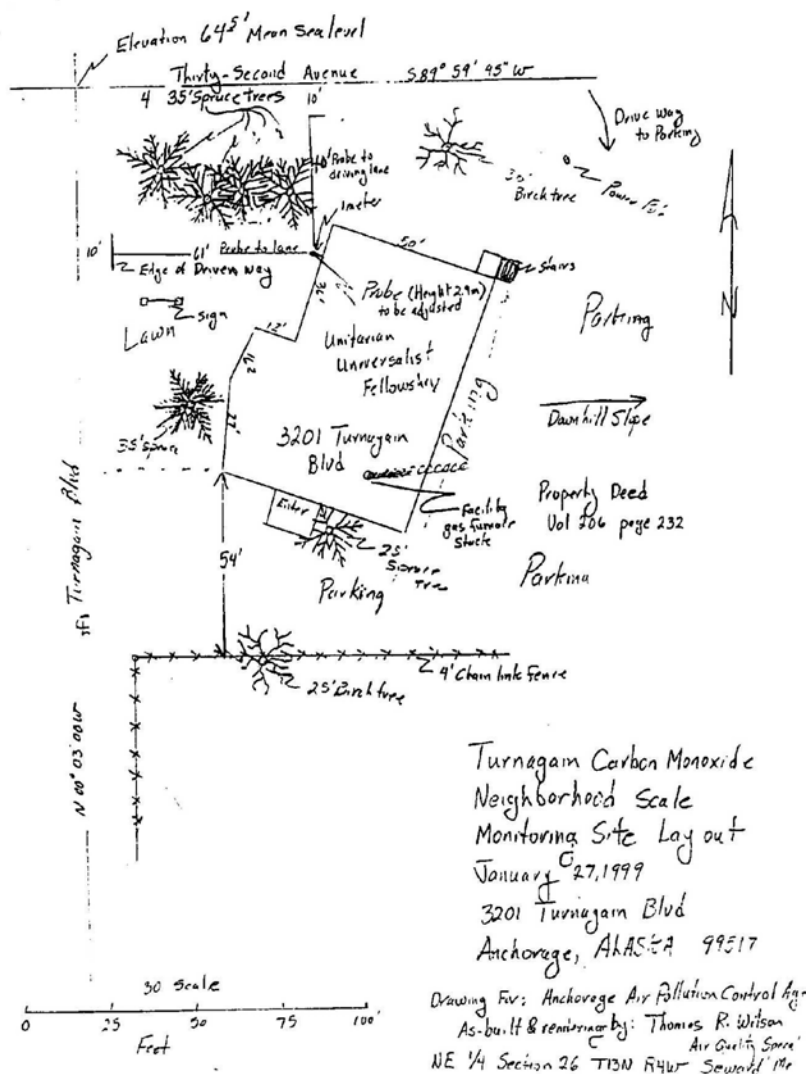 Elevation 64⁵' Mean Sea level
Thirty-Second Avenue S 89° 59' 45" W
4 35' Spruce trees
10'
Drive way
to Parking
Probe to
driving lane
1 meter
Birch tree
Power Pole
10'
61' Probe to lane
Edge of Driven Way
50'
Stairs
Probe (Height 2.9m)
to be adjusted
Sign
Lawn
12'
Unitarian
Universalist
Fellowship
Parking
Parking
27'
35' Spruce
3201 Turnagain
Blvd
Downhill Slope
Property Deed
Vol 206 page 232
Enter
Facility
gas furnace
Stack
54'
25'
Spruce
Tree
Parking
Parking
Turnagain Blvd
25' Birch tree
4' Chain link Fence
N 00° 03' 00 W
N
Turnagain Carbon Monoxide
Neighborhood Scale
Monitoring Site Layout
January 27, 1999
3201 Turnagain Blvd
Anchorage, ALASKA 99517
30 Scale
0 25 50 75 100'
Feet
Drawing For: Anchorage Air Pollution Control
As-built & by: Thomas R. Wilson
Air Quality
NE 1/4 Section 26 T13N R4W Seward